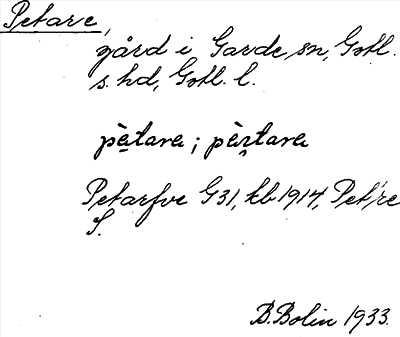 Petare,
gård i Garde sn, Gotl.
s. hd, Gotl. l.
pètara ; pèrtara
Petarfve G31, kb 1914, Pet/re
S.
B. Bolin 1933.